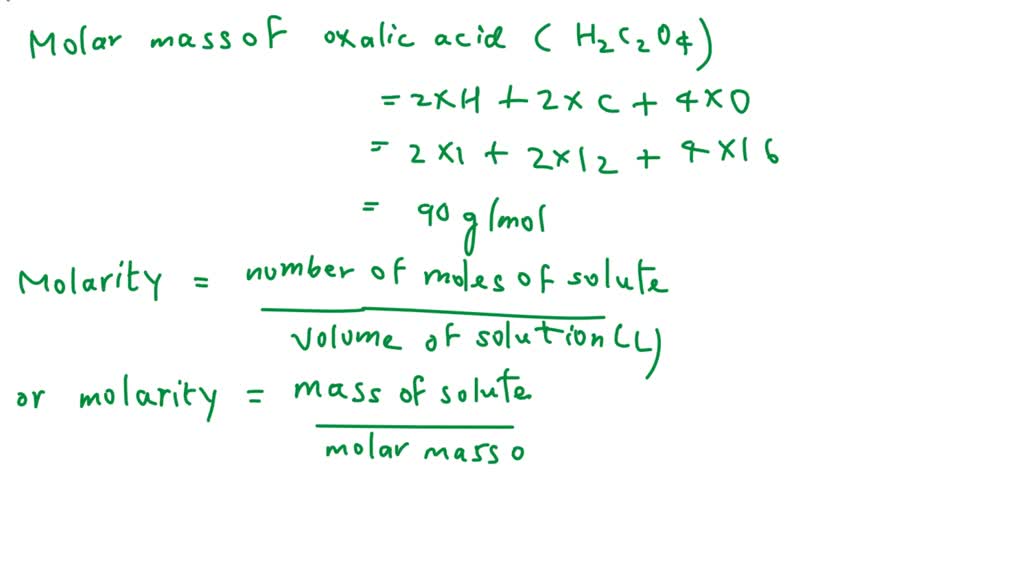 Molar mass of oxalic acid (H₂C₂O₄)
= 2×H + 2×C + 4×O
= 2×1 + 2×12 + 4×16
= 90 g/mol
Molarity = number of moles of solute
volume of solution (L)
or molarity = mass of solute
molar mass o